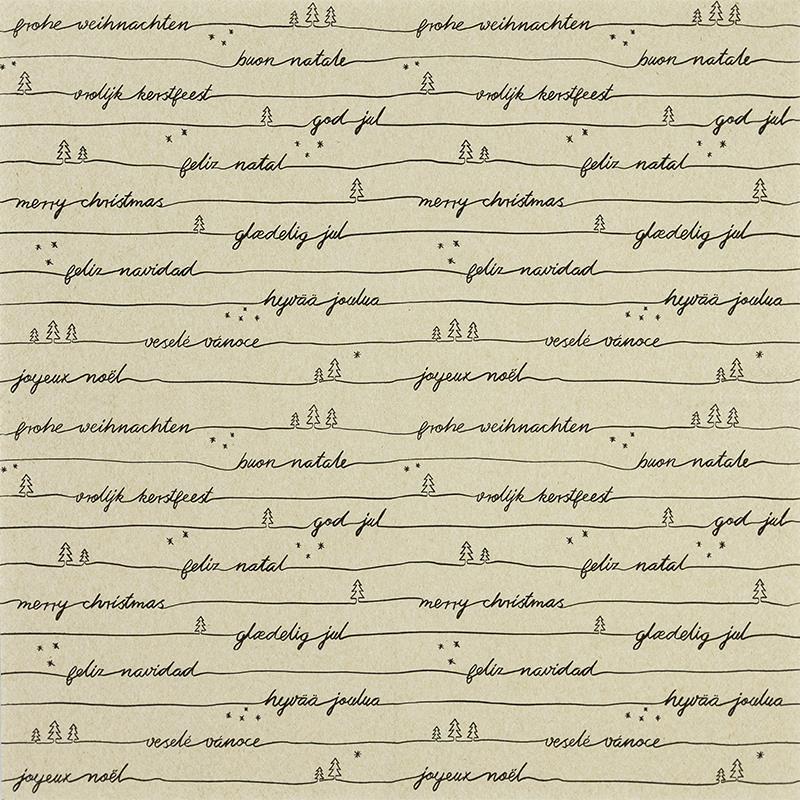 frohe weihnachten frohe weihnachten
buon natale buon natale
vrolijk kerstfeest vrolijk kerstfeest
god jul god jul
feliz natal feliz natal
merry christmas merry christmas
glædelig jul glædelig jul
feliz navidad feliz navidad
hyvää joulua hyvää joulua
veselé vánoce veselé vánoce
joyeux noël joyeux noël
frohe weihnachten frohe weihnachten
buon natale buon natale
vrolijk kerstfeest vrolijk kerstfeest
god jul god jul
feliz natal feliz natal
merry christmas merry christmas
glædelig jul glædelig jul
feliz navidad feliz navidad
hyvää joulua hyvää joulua
veselé vánoce veselé vánoce
joyeux noël joyeux noël